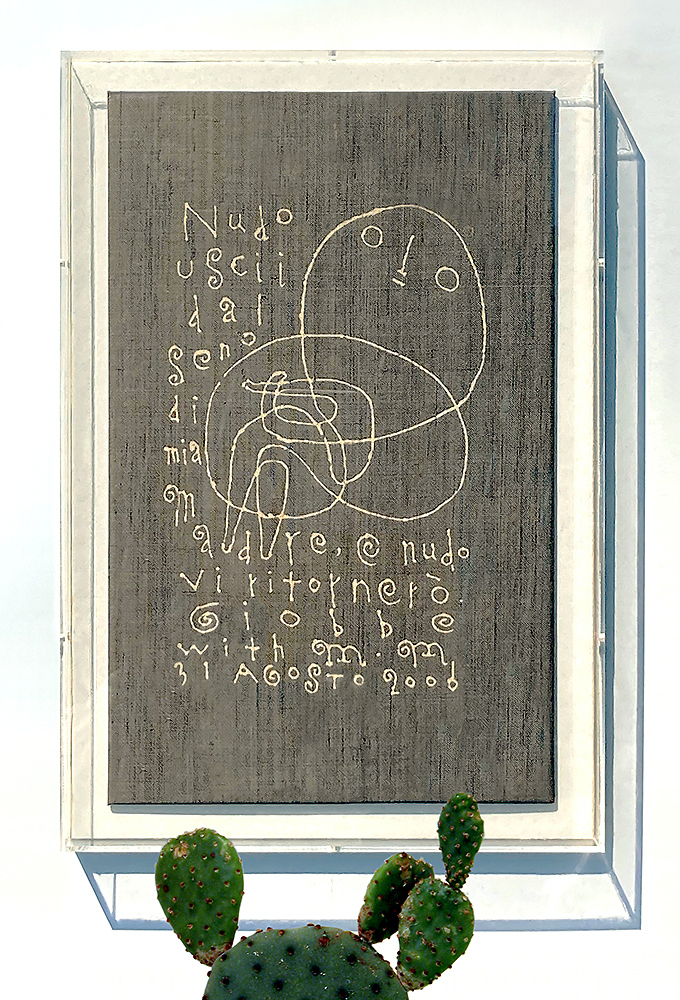 Nudo
uscii
dal
seno
di
mia
m
adre, e nudo
vi ritornerò.
Giobbe
with m.m
31 AGOSTO 2006